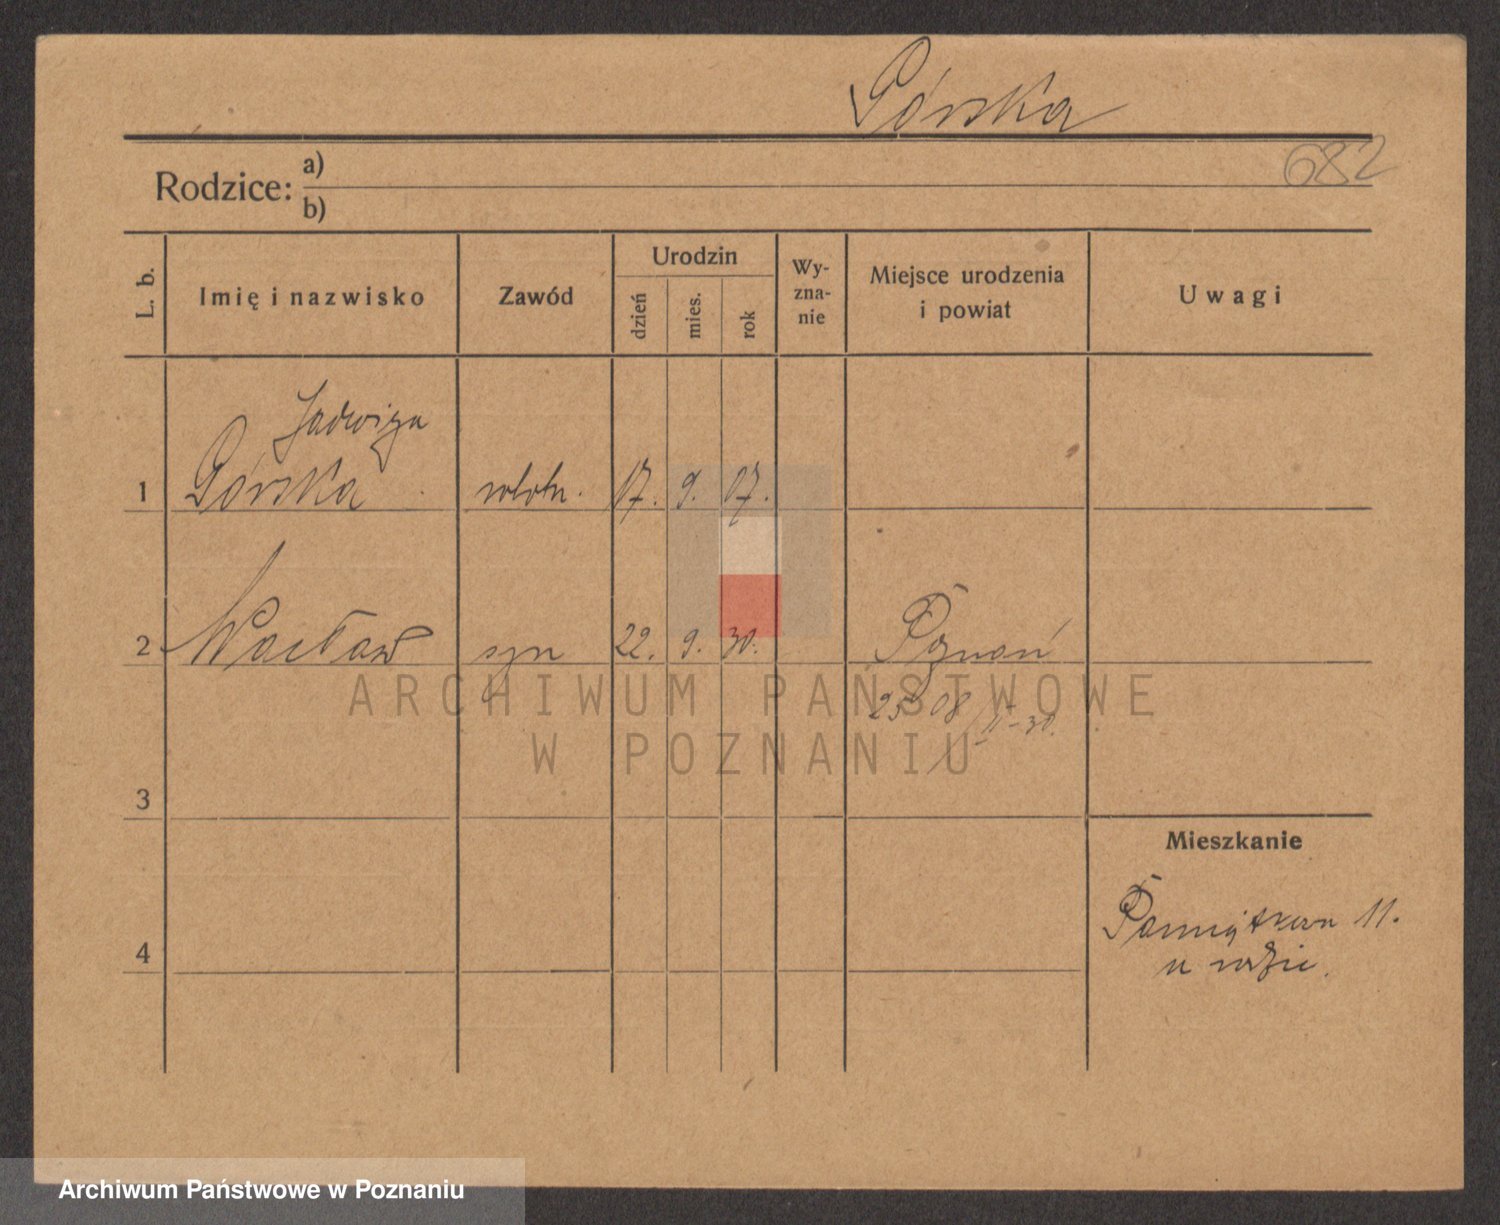 Górska
682
Rodzice: a)
b)
L. b.
Imię i nazwisko
Zawód
Urodzin
dzień
mies.
rok
Wy-
zna-
nie
Miejsce urodzenia
i powiat
Uwagi
Jadwiga
1 Górska robotn. 17. 9. 07.
2 Wacław syn 22. 9. 30. Poznań
ARCHIWUM PAŃSTWOWE
W POZNANIU
3
Mieszkanie
Pamiątkowa 11.
4
Archiwum Państwowe w Poznaniu